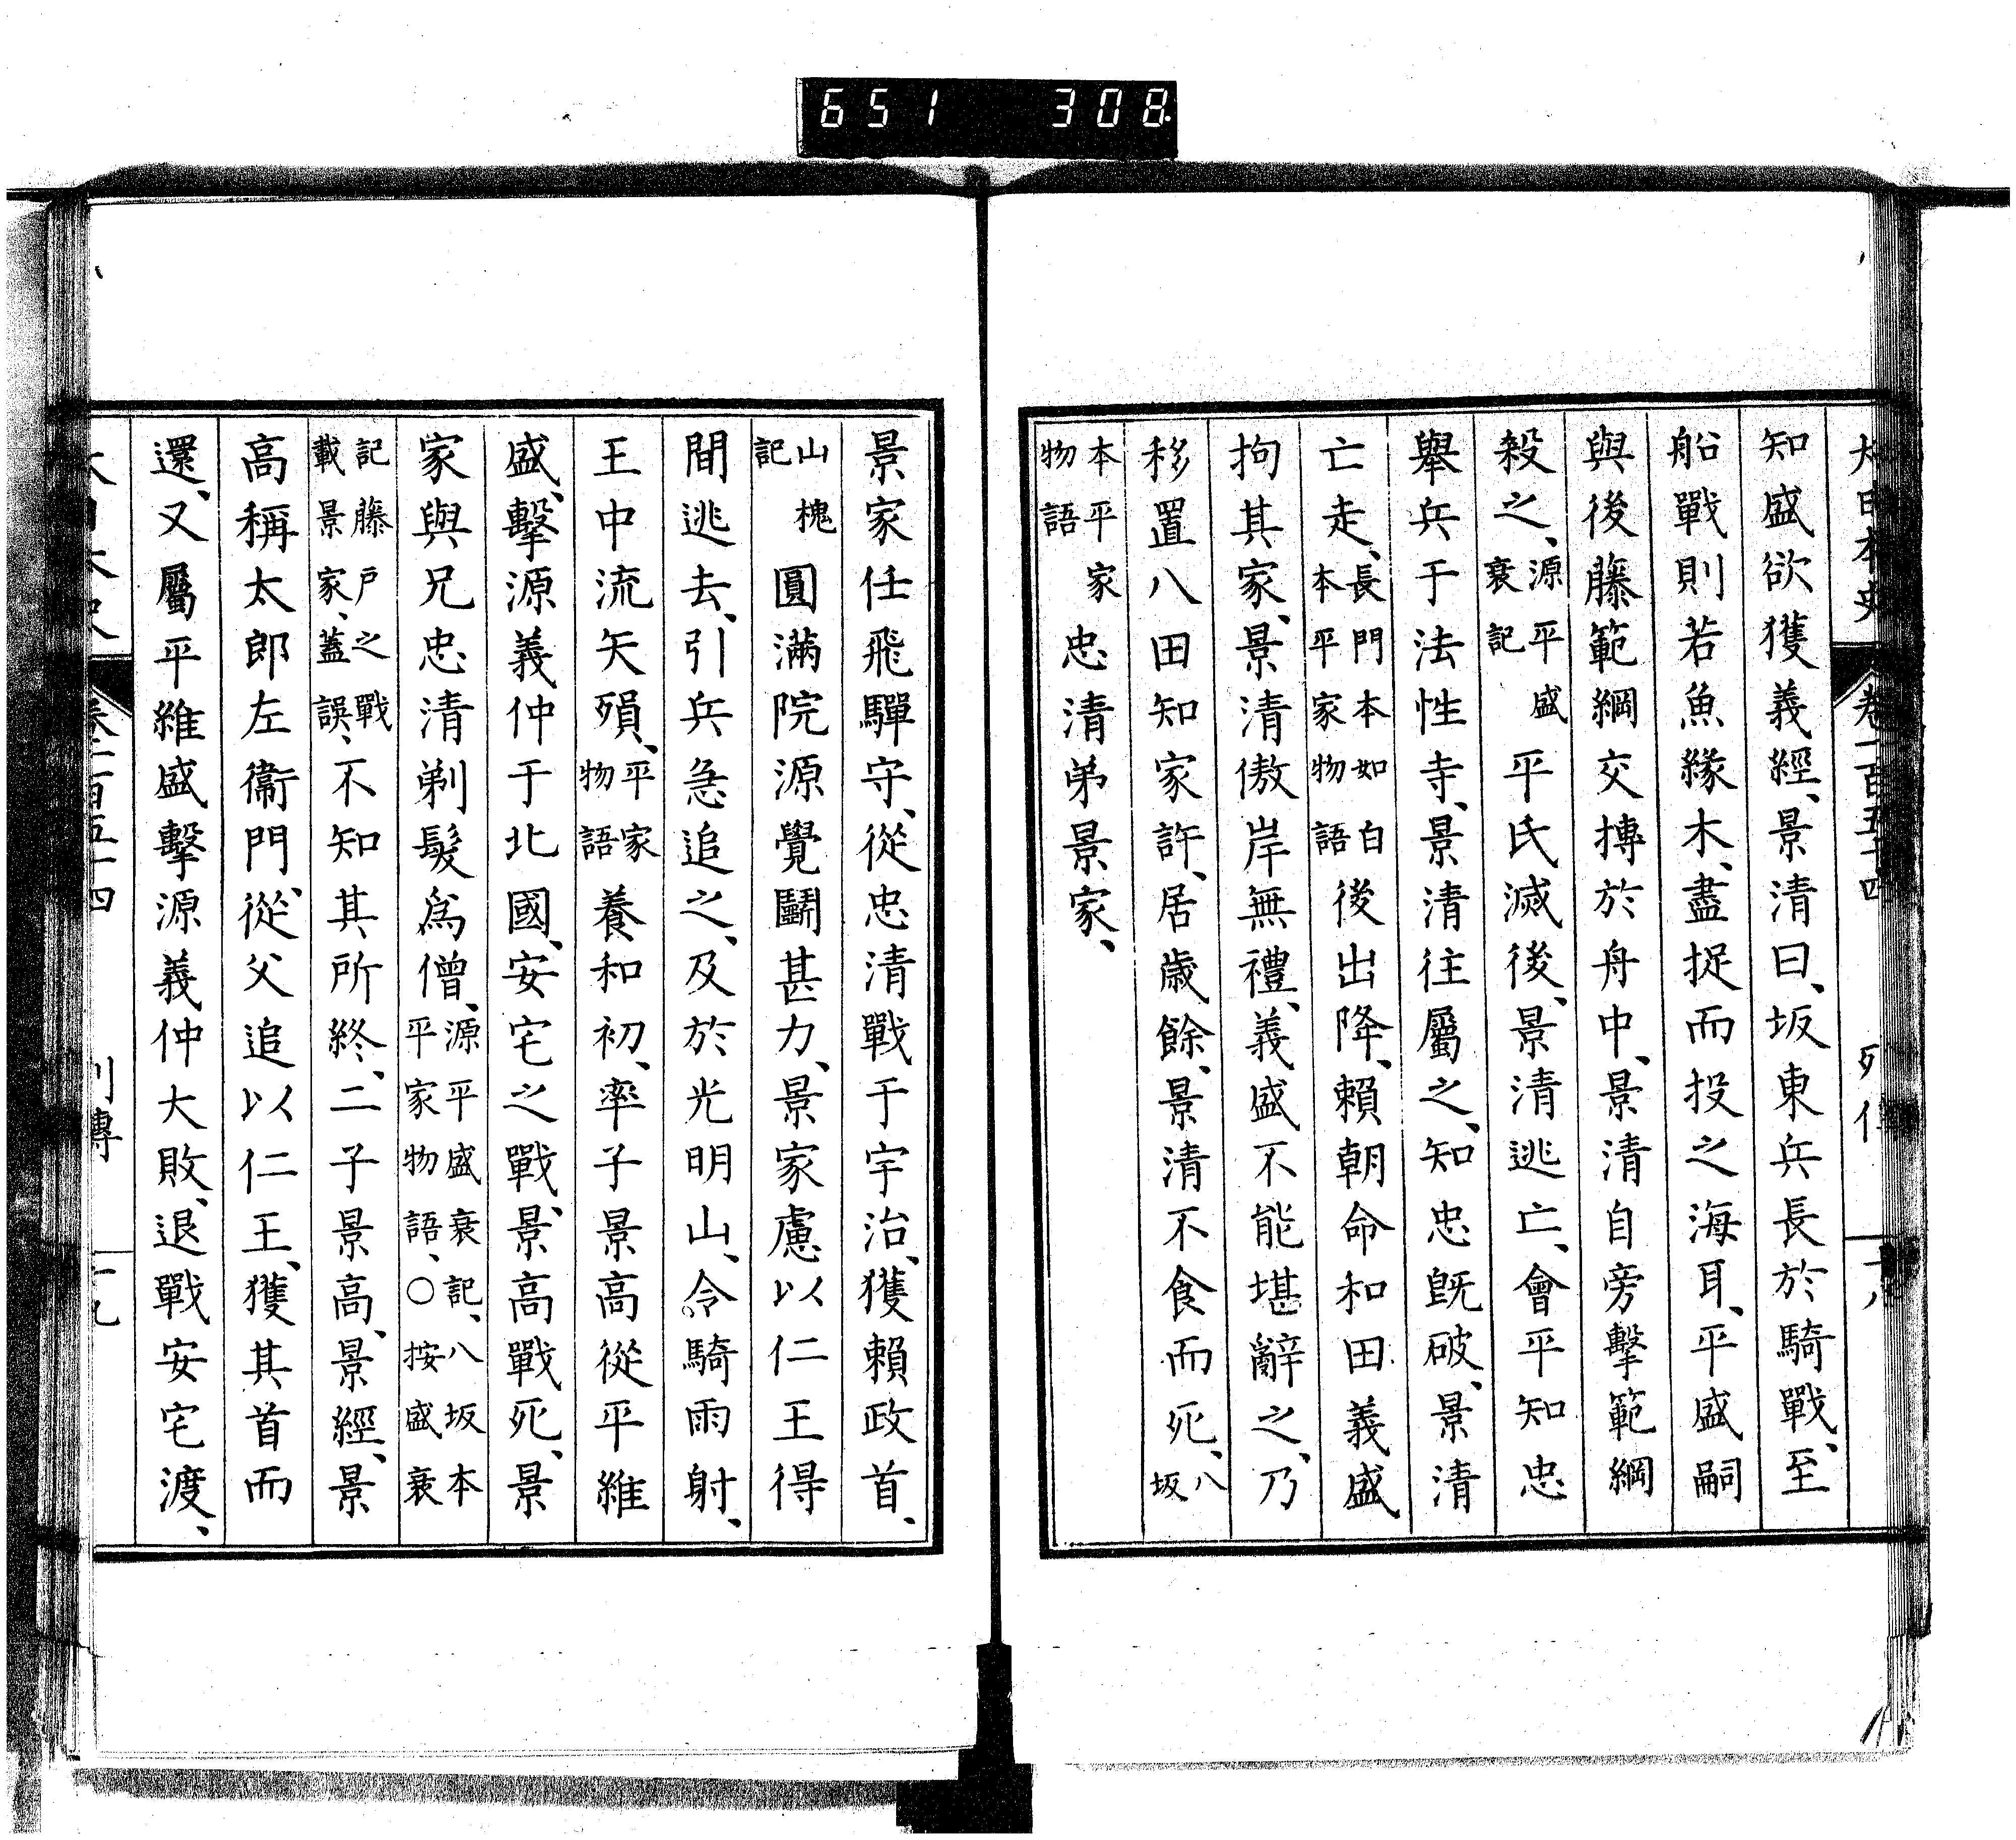 651 308
大日本史 卷一百五十四 列傳 十八
知盛欲獲義經、景清曰、坂東兵長於騎戰、至
船戰則若魚緣木、盡捉而投之海耳、平盛嗣
與後藤範綱交搏於舟中、景清自旁擊範綱
殺之、源平盛衰記 平氏滅後、景清逃亡、會平知忠
舉兵于法性寺、景清往屬之、知忠既破、景清
亡走、長門本如白本平家物語 後出降、賴朝命和田義盛
拘其家、景清傲岸無禮、義盛不能堪辭之、乃
移置八田知家許、居歲餘、景清不食而死、八坂
本平家物語 忠清弟景家、
景家任飛驒守、從忠清戰于宇治、獲賴政首、
山槐記 圓滿院源覺鬭甚力、景家慮以仁王得
間逃去、引兵急追之、及於光明山、令騎雨射、
王中流矢殞、平家物語 養和初、率子景高從平維
盛、擊源義仲于北國、安宅之戰、景高戰死、景
家與兄忠清剃髮爲僧、源平盛衰記、八坂本平家物語、○按盛衰
記藤戶之戰載景家、蓋誤、不知其所終、二子景高、景經、景
高稱太郎左衞門、從父追以仁王、獲其首而
還、又屬平維盛擊源義仲大敗、退戰安宅渡、
大日本史 卷一百五十四 列傳 十九